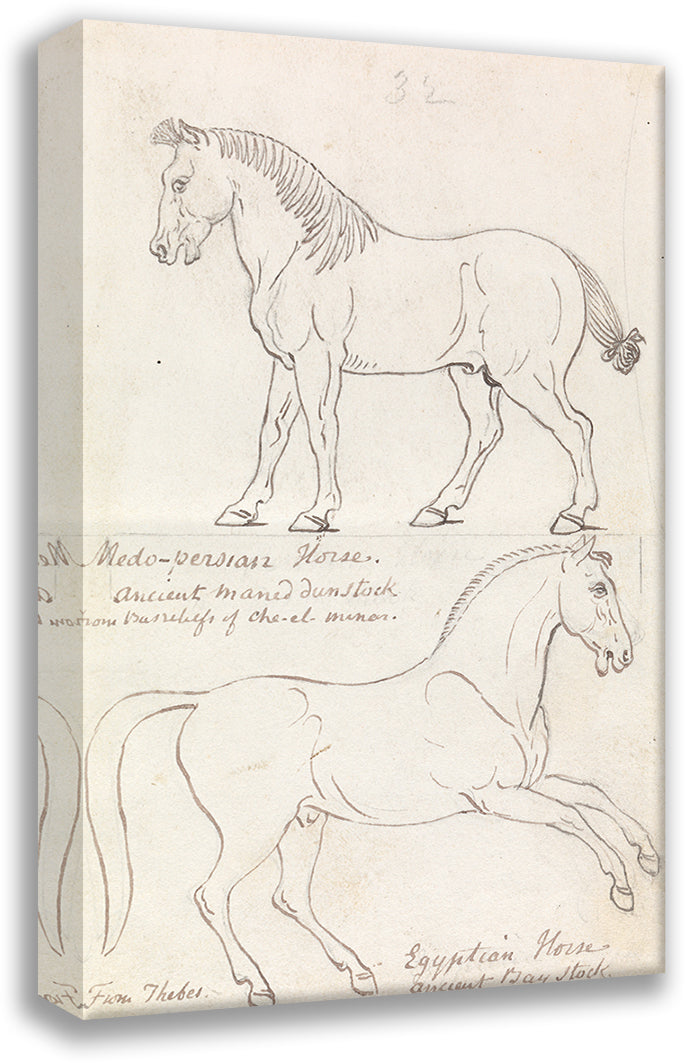 32
Medo-persian Horse.
ancient maned dun stock
from Basreliefs of Che-el-minar.
Egyptian Horse
ancient Bay stock.
From Thebes.